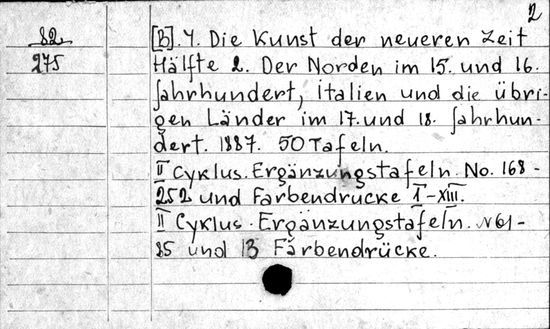 2
82
275
[B]. 4. Die Kunst der neueren Zeit
Hälfte 2. Der Norden im 15. und 16.
Jahrhundert, Italien und die übri-
gen Länder im 17. und 18. Jahrhun-
dert. 1887. 50 Tafeln.
II Cyklus. Ergänzungstafeln. No. 168-
252 und Farbendrücke I-XIII.
II Cyklus. Ergänzungstafeln. N 61-
85 und 13 Färbendrücke.